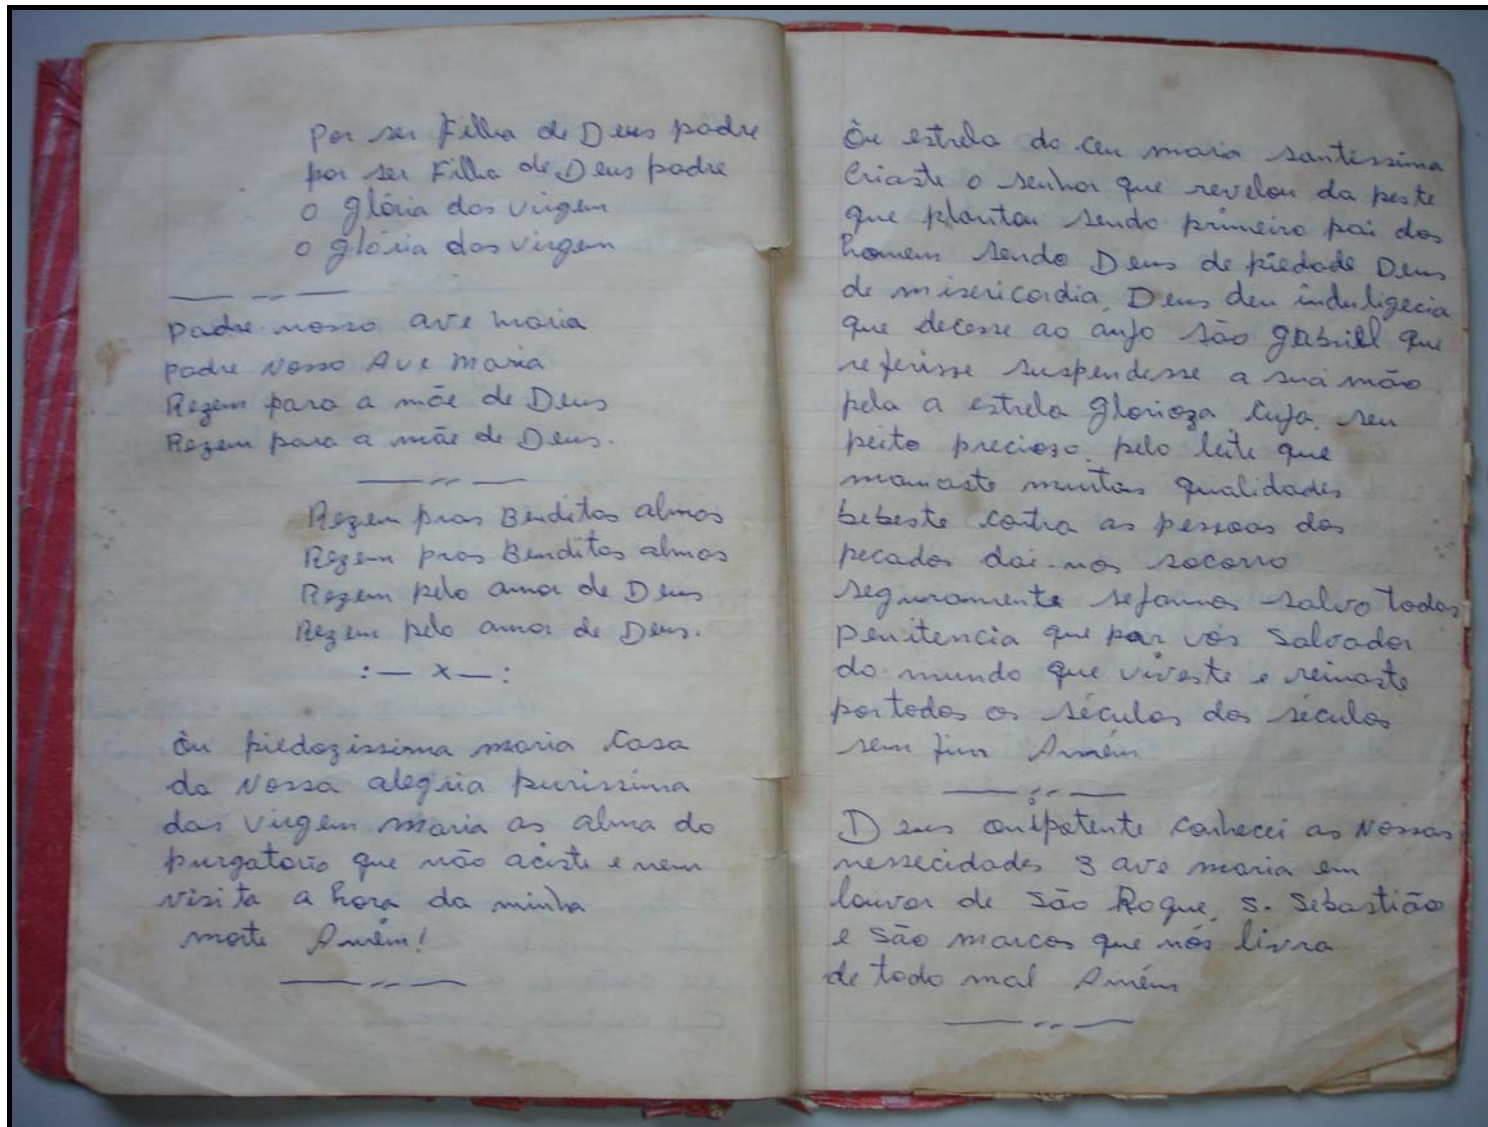 Por ser Filha de Deus padre
por ser Filha de Deus padre
o glória das virgem
o glória das virgem
padre nosso ave maria
padre Nosso Ave Maria
Rezem para a mãe de Deus
Rezem para a mãe de Deus.
Rezem pras Benditas almas
Rezem pras Benditas almas
Rezem pelo amor de Deus
Rezem pelo amor de Deus.
:— x —:
Ôu piedozissima maria Casa
da Nossa alegria purissima
das virgem maria as alma do
purgatorio que não aciste e nem
visita a hora da minha
morte Amém!
Ôu estrela do Ceu maria santissima
Criaste o senhor que revelou da peste
que plantou sendo primeiro pai dos
homem sendo Deus de piedade Deus
de misericordia, Deus deu induligecia
que decesse ao anjo são gabriel que
referisse suspendesse a sua mão
pela a estrela glorioza Cuja, seu
peito precioso, pelo leite que
mamaste muitas qualidades
bebeste contra as pessoas dos
pecados dai-nos socorro
seguramente sejamos salvo todos
penitencia que por vós Salvador
do mundo que viveste e reinaste
por todos os séculos dos séculos
sem fim Amém
Deus onipotente conhecei as Nossas
nessecidades 3 ave maria em
louvor de São Roque, S. Sebastião
e São marcos que nós livra
de todo mal Amém